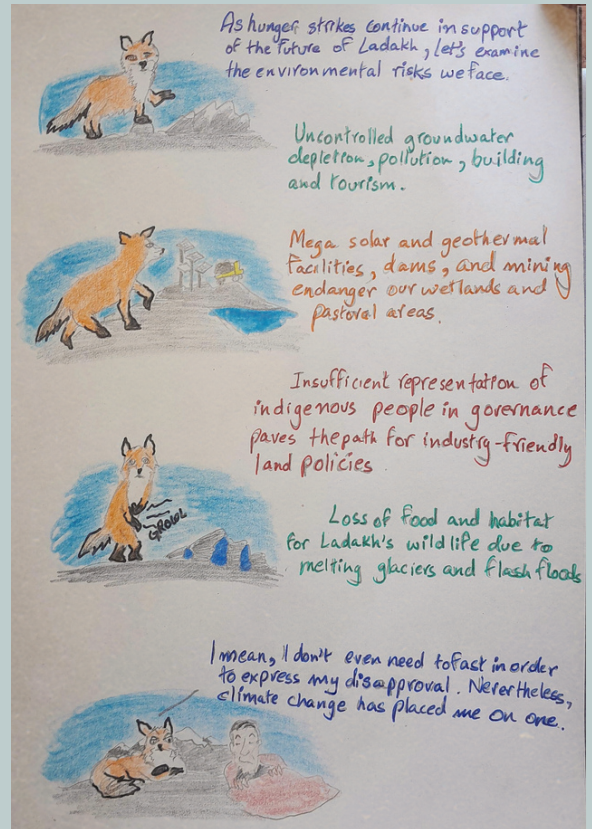 As hunger strikes continue in support
of the future of Ladakh, let's examine
the environmental risks we face.
Uncontrolled groundwater
depletion, pollution, building
and tourism.
Mega solar and geothermal
facilities, dams, and mining
endanger our wetlands and
pastoral areas.
Insufficient representation of
indigenous people in governance
paves the path for industry-friendly
land policies
GROWL
Loss of food and habitat
for Ladakh's wildlife due to
melting glaciers and flash floods
I mean, I don't even need to fast in order
to express my disapproval. Nevertheless,
climate change has placed me on one.